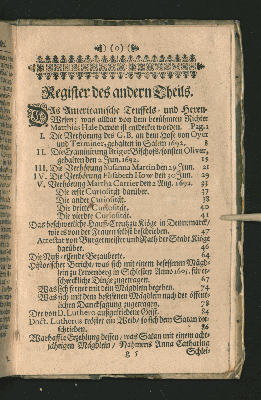 (o)
Register des andern Theils.
Das Americanische Teuffels- und Hexen-
Wesen; was alldar von dem berühmten Richter
Matthias Hale davon ist entdecket worden. Pag. 1
I. Die Verhörung des G. B. an dem Hofe von Oyer
und Terminer, gehalten in Salem 1692. 8
II. Die Examinirung Briget Bischofs sonsten Oliver,
gehalten den 2 Jun. 1692. 15
III. Die Verhörung Susanna Martin den 29 Jun. 21
IV. Die Verhörung Elisabeth How den 30 Jun. 29
V. Verhörung Martha Carrier den 2 Aug. 1692. 33
Die erste Curiosität darüber. 37
Die andre Curiosität. 38
Die dritte Curiosität. 40
Die vierdte Curiosität. 41
Das beschwerliche Hauß-Creutz zu Kiöge in Dennemarck,
wie es von der Frauen selbst beschrieben. 47
Attestat von Burgermeister und Rath der Stadt Kiöge
darüber. 46
Die Nuß-essende Bezauberte. 64
Historischer Bericht, was sich mit einem besessenen Mägd-
lein zu Lewenberg in Schlesien Anno 1605. für er-
schreckliche Dinge zugetragen. 67
Was sich ferner mit dem Mägdlein begeben. 74
Was sich mit dem besessenen Mägdlein nach der öffent-
lichen Dancksagung zugetragen. 78
Der von D. Luthero außgetriebene Geist. 84
Doct. Lutherus tröstet ein Weib, so sich dem Satan ver-
schrieben. 86
Warhaffte Erzehlung dessen, was Satan mit einem acht-
jährigen Mägdlein, Nahmens Anna Catharina
g 5 Schlei-